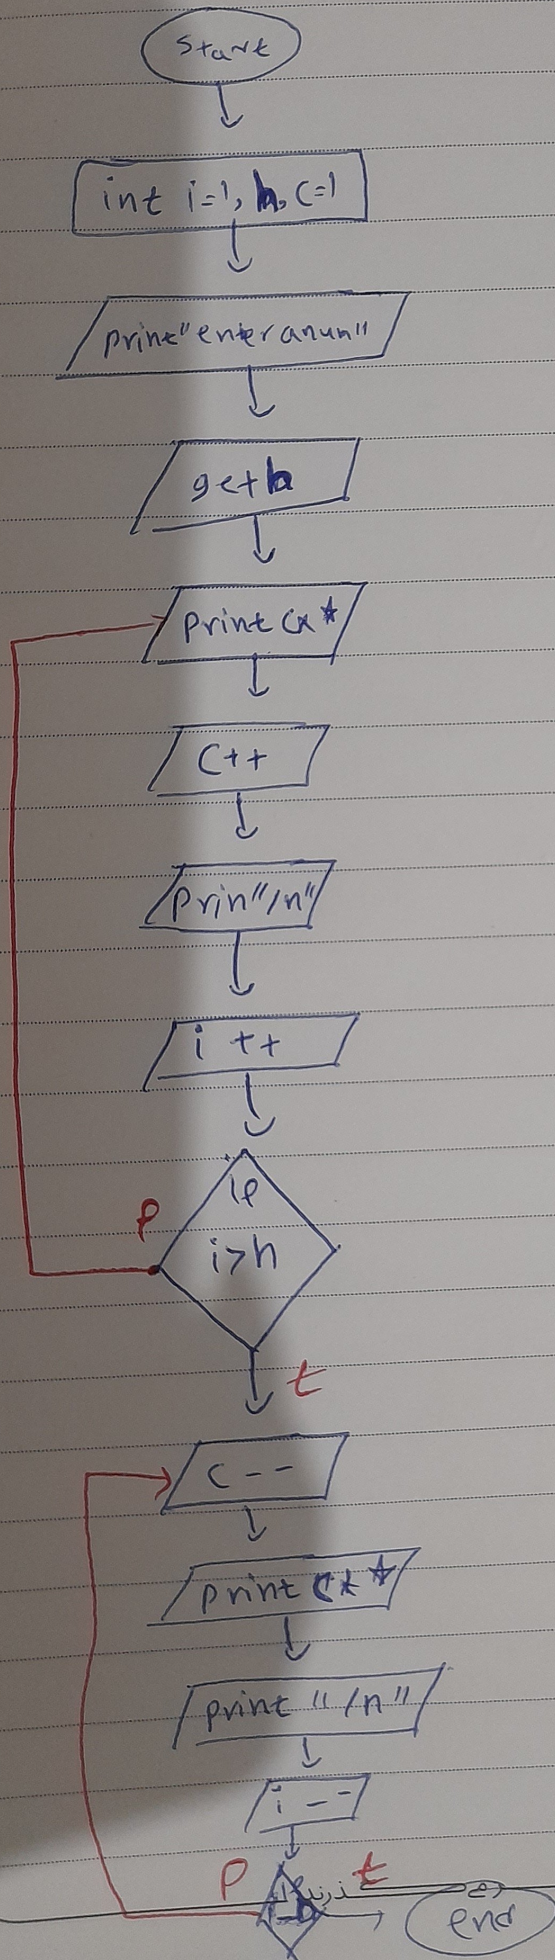 start
int i=1, h, c=1
print"enter a num"
get h
print c*★
c++
prin"/n"
i ++
if
i>h
f
t
c--
print c*★
print "/n"
i--
f
t
end